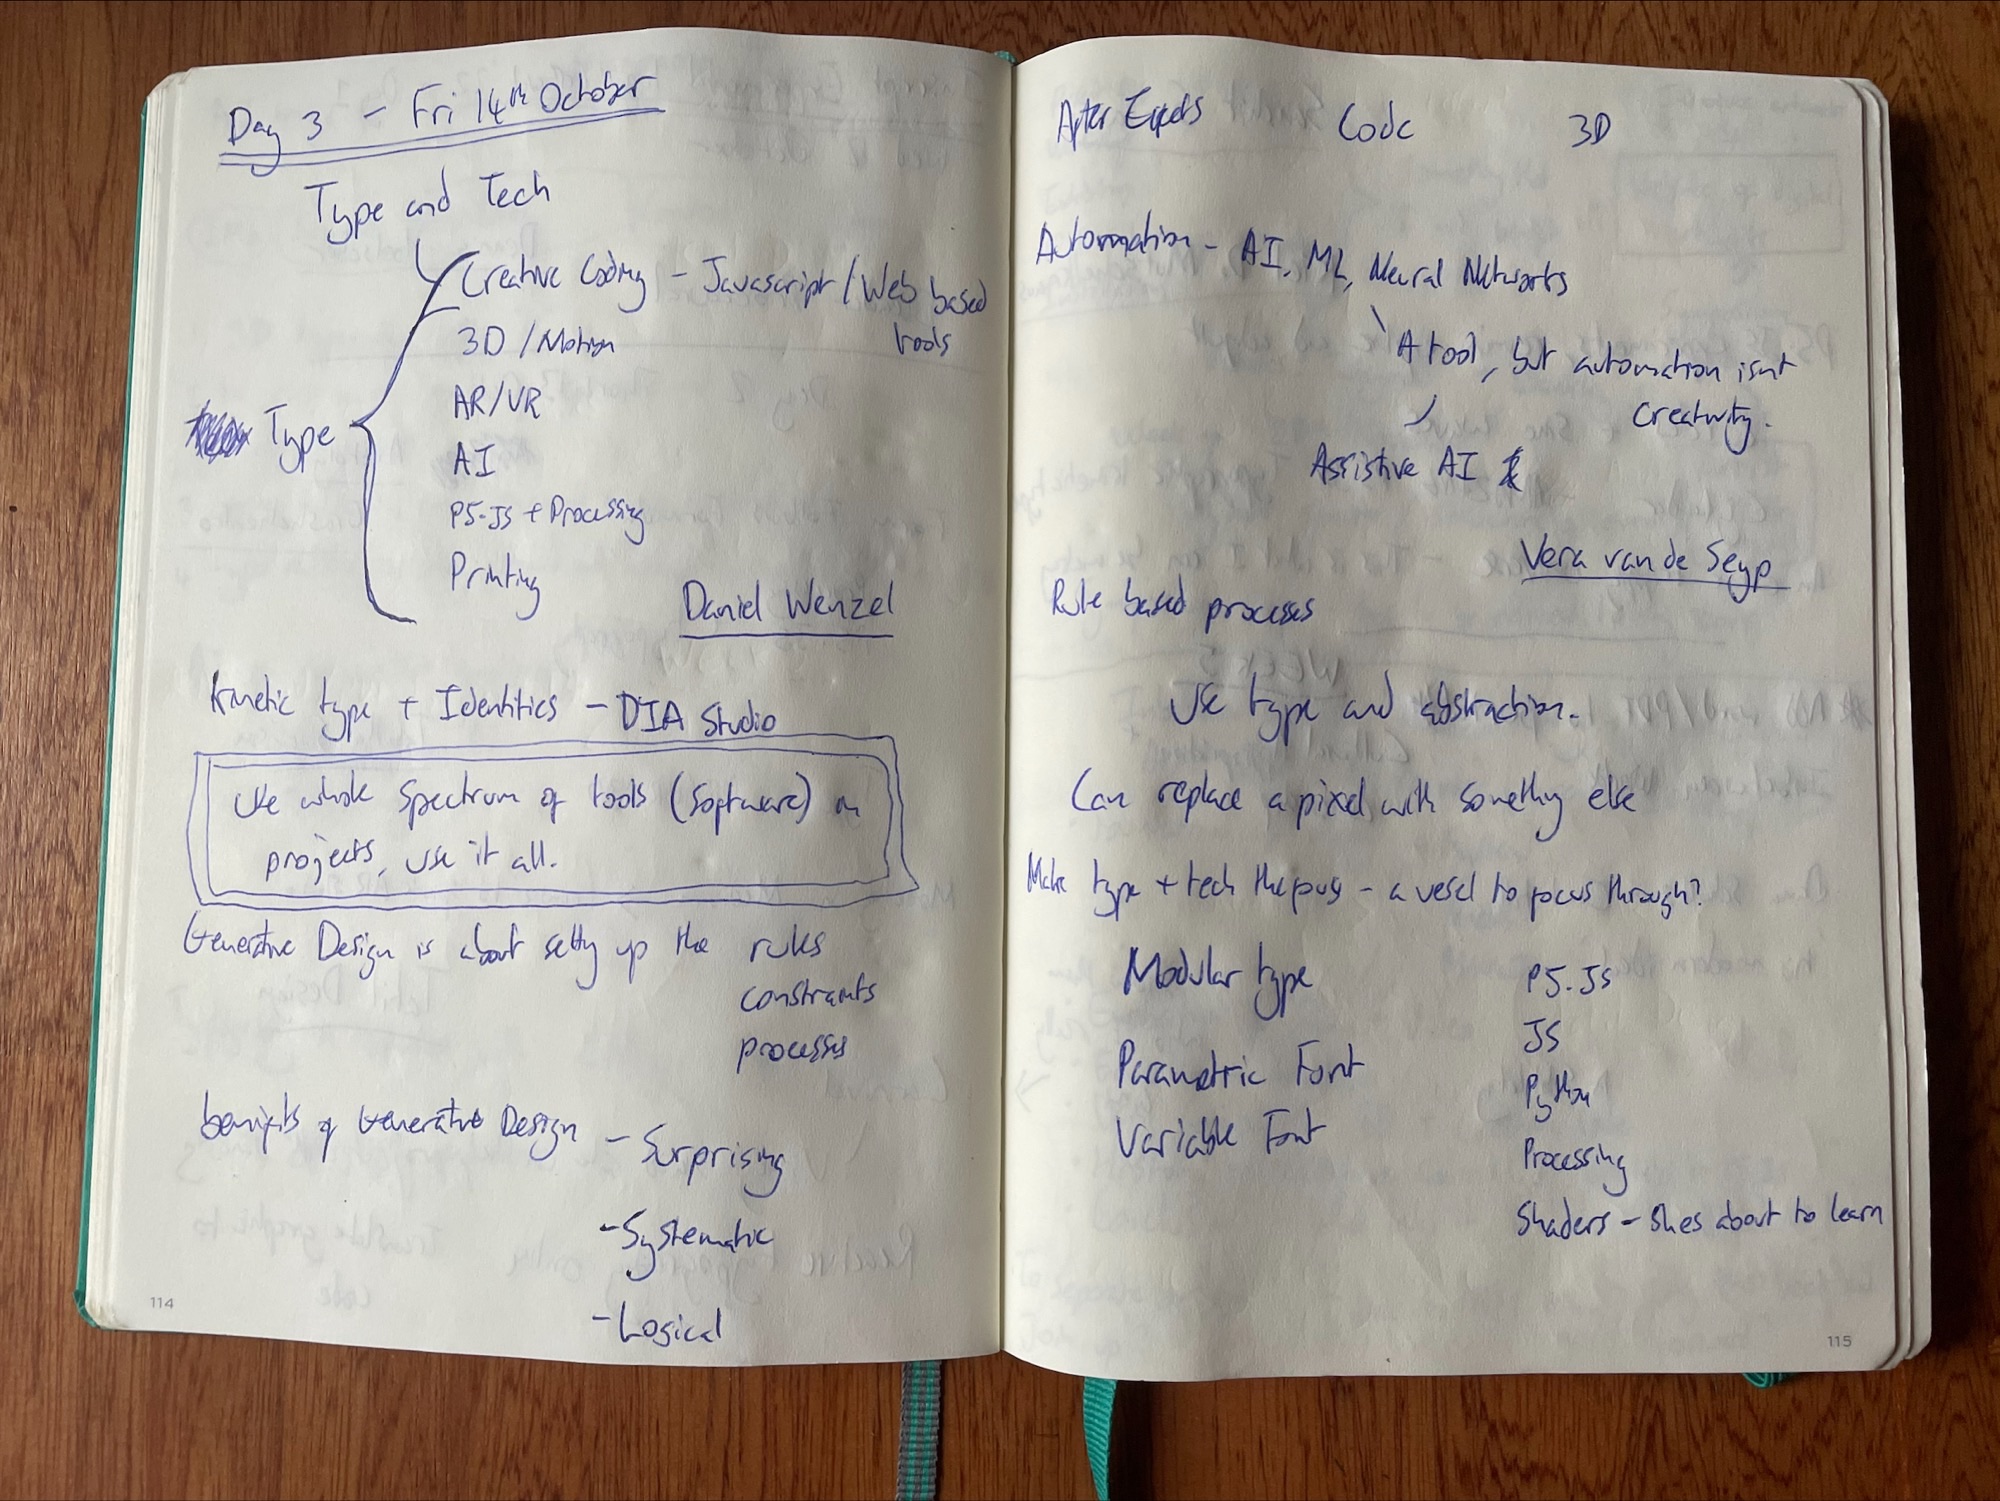 Day 3 - Fri 14th October
Type and Tech
Creative Coding - Javascript / Web based
tools
3D / Motion
AR/VR
Type
AI
P5.JS + Processing
Printing
Daniel Wenzel
Kinetic type + Identities - DIA Studio
Use whole spectrum of tools (software) on
projects, use it all.
Generative Design is about setting up the rules
constraints
processes
benifits of Generative Design - Surprising
- Systematic
- Logical
114
After Effects Code 3D
Automation - AI, ML, Neural Networks
A tool, but automation isnt
Creativity.
Assistive AI
Vera van de Seyp
Rule based processes
Use type and abstraction.
Can replace a pixel with something else
Make type + tech the - a vesel to focus through?
Modular type P5.JS
JS
Parametric Font
Python
Variable Font
Processing
Shaders - Shes about to learn
115